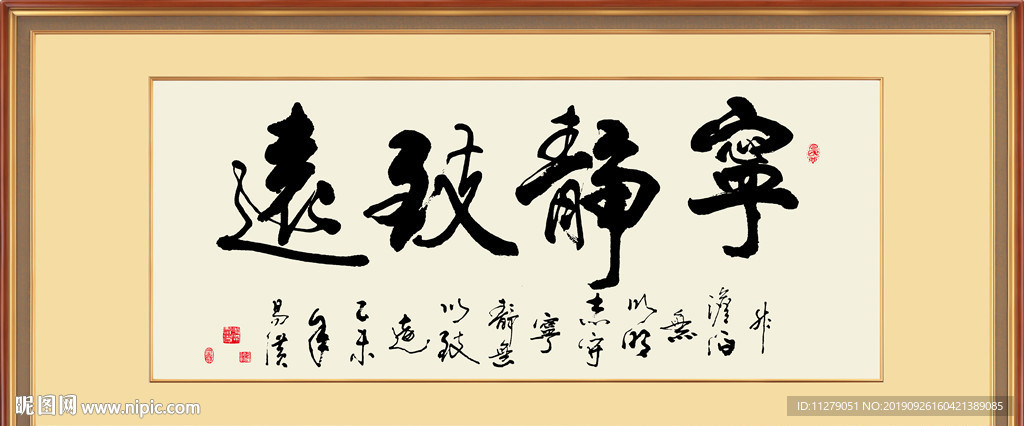 寧靜致遠
非
澹泊
無
以明
志寧
靜無
以致
遠
己未
年
易漢
昵图网 www.nipic.com
ID:11279051 NO:20190926160421389085